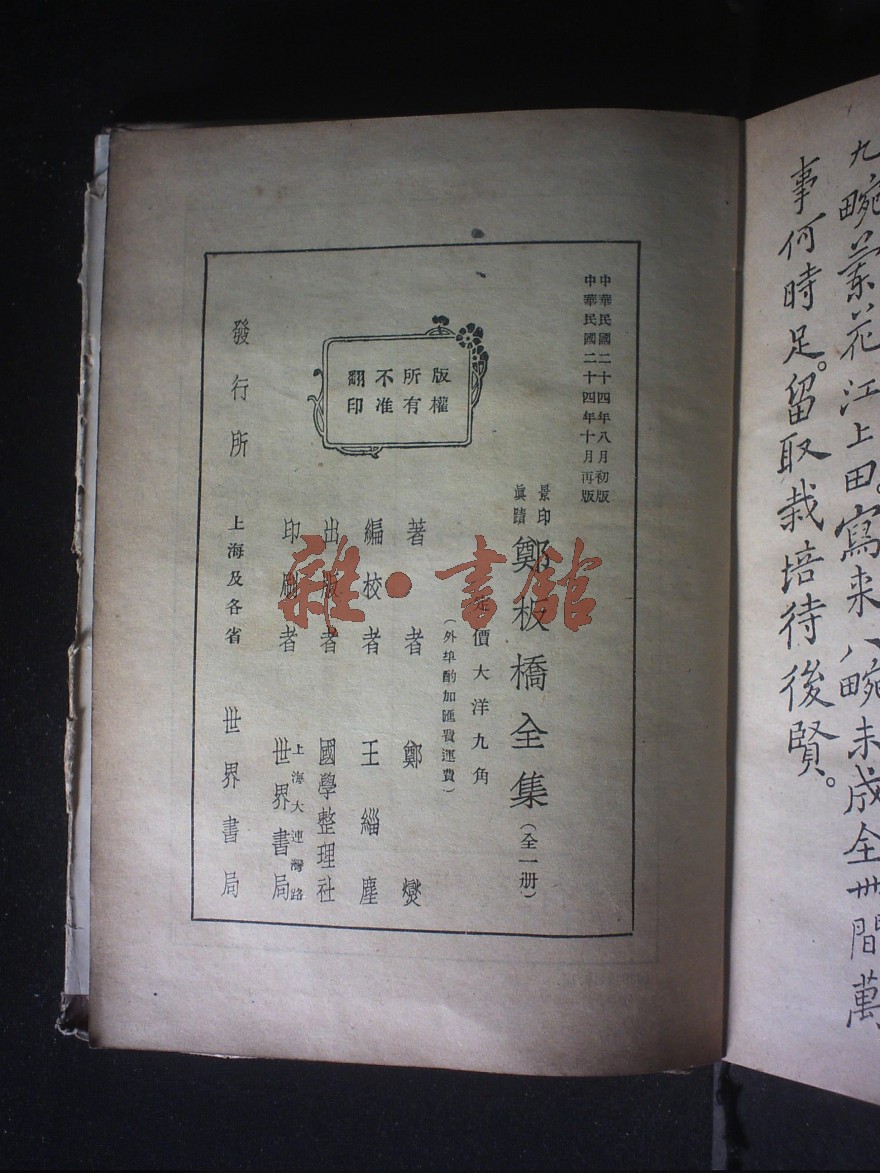 九畹蘭花江上田。寫来八畹未成全世間萬
事何時足。留取栽培待後賢。
中華民國二十四年八月初版
中華民國二十四年十月再版
景印
眞蹟
鄭板橋全集（全一册）
定價大洋九角
（外埠酌加匯費運費）
著者 鄭燮
編校者 王緇塵
出版者 國學整理社
上海大連灣路
印刷者 世界書局
發行所 上海及各省 世界書局
版權
所有
不准
翻印
雜·書館